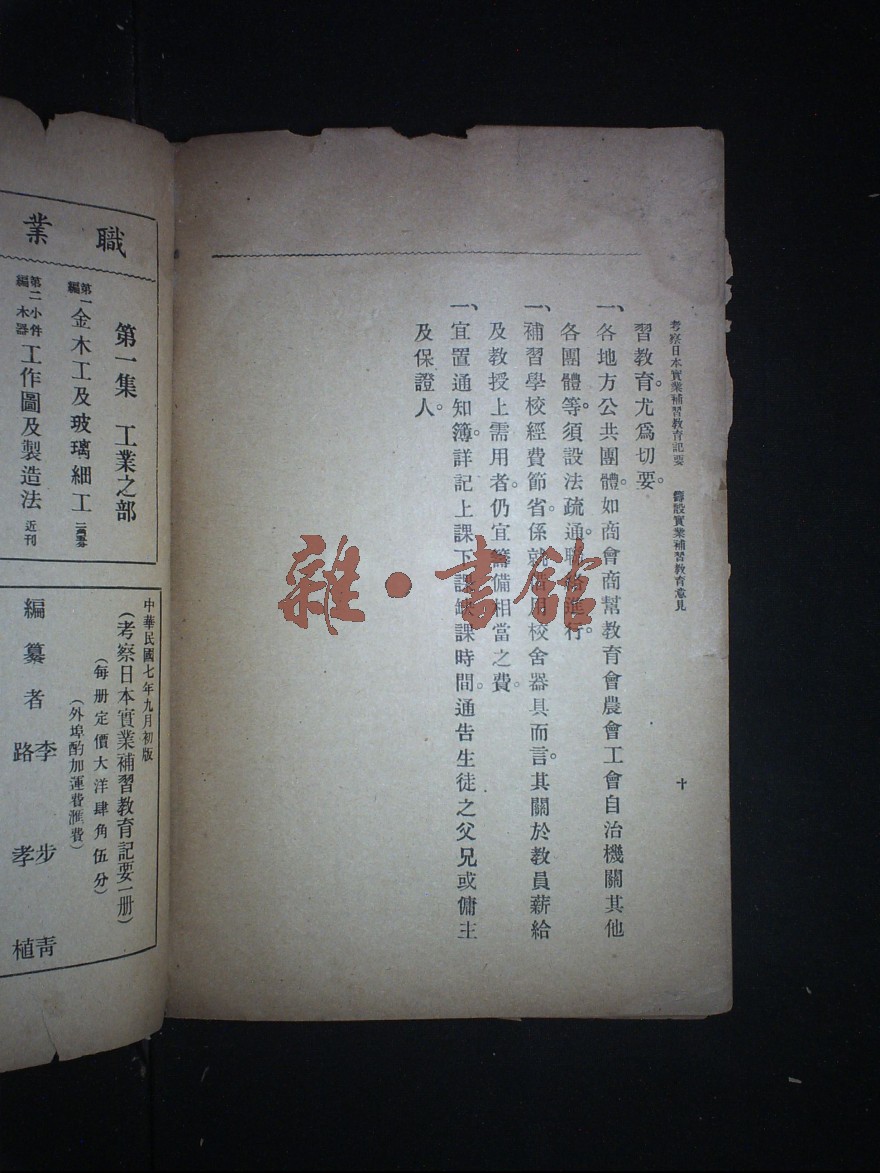 考察日本實業補習教育記要 籌設實業補習教育意見
十
習教育。尤爲切要。
一、各地方公共團體。如商會商幫教育會農會工會自治機關其他
各團體等。須設法疏通。聯絡進行。
一、補習學校經費節省。係就借用校舍器具而言。其關於教員薪給
及教授上需用者。仍宜籌備相當之費。
一、宜置通知簿。詳記上課下課缺課時間。通告生徒之父兄或傭主
及保證人。
職業
第一集 工業之部
第一編 金木工及玻璃細工
第二編 小件木器工作圖及製造法 近刊
中華民國七年九月初版
(考察日本實業補習教育記要一册)
(每册定價大洋肆角伍分)
(外埠酌加運費滙費)
編纂者 李步青
路孝植
雜·書館